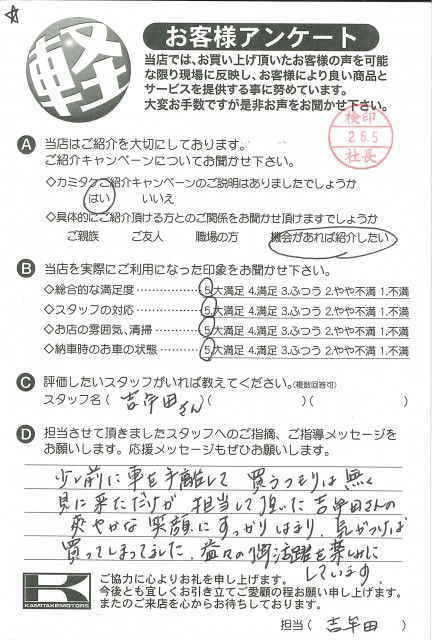 軽
お客様アンケート
当店では、お買い上げ頂いたお客様の声を可能
な限り現場に反映し、お客様により良い商品と
サービスを提供する事に努めています。
大変お手数ですが是非お声をお聞かせ下さい。
検印
26.5
社長
A 当店はご紹介を大切にしております。
ご紹介キャンペーンについてお聞かせ下さい。
◇カミタケご紹介キャンペーンのご説明はありましたでしょうか
はい いいえ
◇具体的にご紹介頂ける方とのご関係をお聞かせ頂けますでしょうか
ご親族 ご友人 職場の方 機会があれば紹介したい
B 当店を実際にご利用になった印象をお聞かせ下さい。
◇総合的な満足度 5.大満足 4.満足 3.ふつう 2.やや不満 1.不満
◇スタッフの対応 5.大満足 4.満足 3.ふつう 2.やや不満 1.不満
◇お店の雰囲気、清掃 5.大満足 4.満足 3.ふつう 2.やや不満 1.不満
◇納車時のお車の状態 5.大満足 4.満足 3.ふつう 2.やや不満 1.不満
C 評価したいスタッフがいれば教えてください。(複数回答可)
スタッフ名( 吉牟田さん )( )( )
D 担当させて頂きましたスタッフへのご指摘、ご指導メッセージを
お願いします。応援メッセージもぜひお願いします。
少し前に車を手離して 買うつもりは無く
見に来ただけが、担当して頂いた吉牟田さんの
爽やかな笑顔にすっかりはまり、気がつけば
買ってしまってました、益々の御活躍を楽しみに
しています。
K
KAMITAKEMOTORS
ご協力に心よりお礼を申し上げます。
今後とも宜しくお引き立てご愛顧の程お願い申し上げます。
またのご来店を心からお待ちしております。
担当( 吉牟田 )